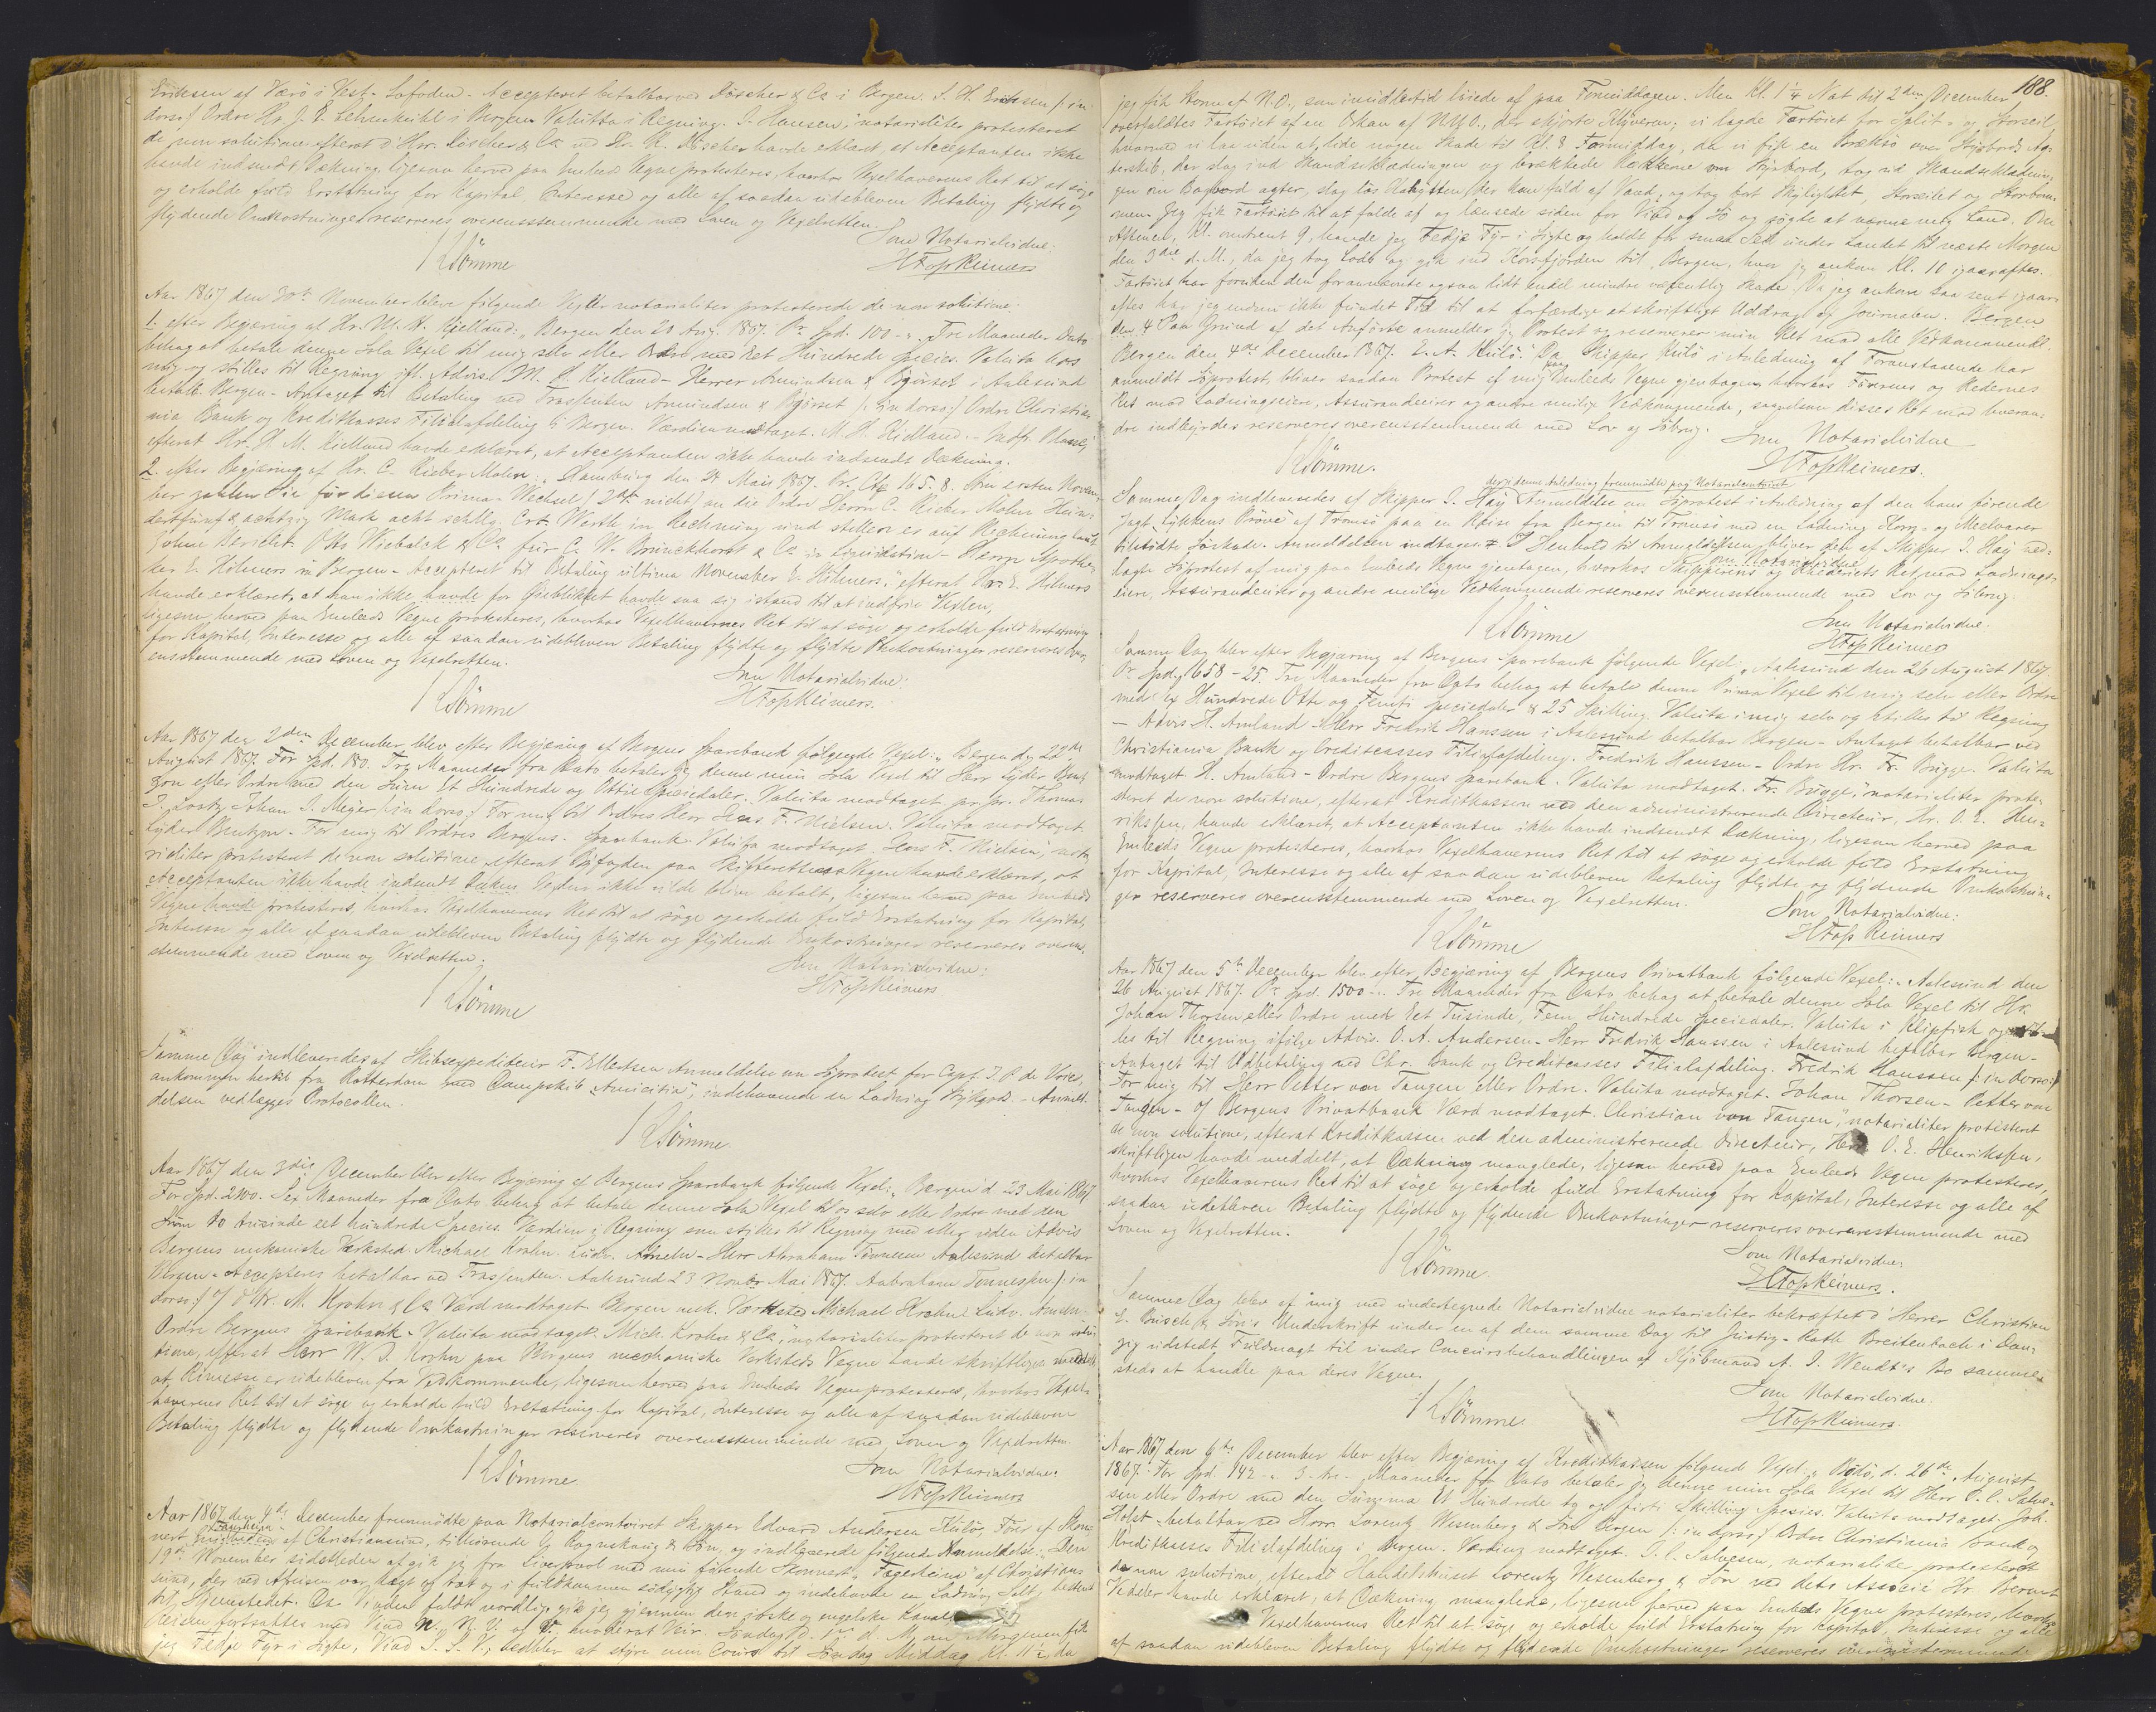 Eriksen af Værö i Vest-Lofoden. Accepteret betalbar ved Röscher & Co i Bergen. S. H. Eriksen /: in
dorso:/ Ordre Hr. J. E. Lehmkuhl i Bergen Valutta i Regning. J. Hansen," notarialiter protesteret
de non solutione efterat d'Hrr. Röscher & Co ved Hr. R. Röscher havde erklært, at Acceptanten ikke
havde indsendt Dækning, ligesom herved paa Embeds Vegne protesteres, hvorhos Vexelhaverens Ret til at søge
og erholde fuld Erstatning for Kapital, Interesse og alle af saadan udebleven Betaling flydte og
flydende Omkostninger reserveres overensstemmende med Loven og Vexelretten.
Som Notarialvidne:
HFossReimers
Aar 1867 den 30te November bleve følgende Vexler notarialiter protesterede de non solutione:
1. efter Begjæring af Hr. M. H. Kielland: „Bergen den 20 Aug. 1867. Pr. Spd. 100 -„- Tre Maaneder Dato
behag at betale denne Sola Vexel til mig selv eller Ordre med Et Hundrede Species. Valuta hos
mig og stilles til Regning ifl. Advis. M. H. Kielland - Herrer Amundsen & Bjørset i Aalesund
betalb. Bergen - Antaget til Betaling ved Trassenten Amundsen & Bjørset /: in dorso:/ Ordre Christia-
nia Bank og Kreditkasses Filialafdeling i Bergen. Værdien modtaget. M. H. Kielland.
efterat Hr. M. Kielland havde erklæret, at Acceptanten ikke havde indsendt Dækning.
2. efter Begjæring af Hr. C. Rieber Mohn: „Hamburg den 31 Mai 1867. Pr. Crt 165. 8. Am ersten Novem-
ber zahlen Sie für diesen Prima-Wechsel (2te nicht) an die Ordre Herrn C. Rieber Mohn Hun-
dertfünf & achtzig Mark acht schllg. Crt. Werth in Rechnung und stellen es auf Rechnung laut
Johne Bericht. Otto Wiebalck & Co für C. W. Brunckhorst & Co in Liquidation - Herrn Apothe-
ker E. Hilmers in Bergen - Accepteret til Betaling ultimo November E. Hilmers," efterat Hr. E. Hilmers
havde erklæret, at han ikke havde for Øieblikket havde saa sig istand til at indfrie Vexlen,
ligesom herved paa Embeds Vegne protesteres, hvorhos Vexelhavernes Ret til at søge og erholde fuld Erstatning
for Kapital, Interesse og alle af saadan udebleven Betaling flydte og flydte Omkostninger reserveres over-
ensstemmende med Loven og Vexelretten.
Som Notarialvidne:
HFossReimers.
Aar 1867 den 2den December blev efter Begjæring af Bergens Sparebank følgende Vexel: „Bergen d. 22de
August 1867. For Spd. 180. Tre Maaneder fra Dato betaler jeg denne min Sola Vexel til Herr Lyder Bent-
zon eller Ordre med den Summa Et Hundrede og Ottie Speciedaler. Valuta modtaget. pr. pr. Thomas
J. Johan J. Meyer /: in dorso:/ For mig til Ordres Herr Jens F. Nielsen. Valuta modtaget.
Lyder Bentzon - For mig til Ordres Bergens Sparebank. Valuta modtaget. Jens F. Nielsen", nota-
rialiter protesteret de non solutione, efterat Byfogden paa Skifterettens Vegne havde erklæret, at
Acceptanten ikke havde indsendt Dækn Vexlen ikke vilde blive betalt, ligesom herved paa Embeds
Vegne havde protesteres, hvorhos Vexelhaverens Ret til at søge og erholde fuld Erstatning for Kapital,
Interesse og alle af saadan udebleven Betaling flydte og flydende Omkostninger reserveres overens-
stemmende med Loven og Vexelretten.
Som Notarialvidne:
HFossReimers
Samme Dag indleveredes af Skibsexpediteur F. Ellertsen Anmeldelse om Søprotest for Capt. J. P. de Vries,
ankommen hertil fra Rotterdam med Dampskib „Amicitia", indehavende en Ladning Stykgods. - Anmel-
delsen vedlægges Protocollen.
Aar 1867 den 3die December blev efter Begjæring af Bergens Sparebank følgende Vexel: „Bergen d. 23 Mai 1867
For Spd. 2100. Sex Maaneder fra Dato behag at betale denne Sola Vexel til os selv eller Ordre med den
Sum to tusinde eet hundrede Species. Værdien i Regning som stilles til Regning med eller uden Advis
Bergens mekaniske Værksted Michael Krohn. Ludv. Ameln - Herr Abraham Tønnesen Aalesund betalbar
Bergen - Accepteres betalbar ved Trassenten. Aalesund 23 Novbr Mai 1867. Aabraham Tønnessen /: in
dorso:/ O/ d'Hr. M. Krohn & Co Værd modtaget. Bergen mek. Værksted Michael Krohn. Ludv. Ameln -
Ordre Bergens Sparebank. Valuta modtaget. Mich. Krohn & Co.," notarialiter protesteret de non solu-
tione, efterat Herr W. D. Krohn paa Bergens mechaniske Verksteds Vegne havde skriftligen meddelt,
at Rimesse er udebleven fra Vedkommende, ligesom herved paa Embeds Vegne protesteres, hvorhos Vexel-
haverens Ret til at søge og erholde fuld Erstatning for Kapital, Interesse og alle af saadan udebleven
Betaling flydte og flydende Omkostninger reserveres overensstemmende med Loven og Vexelretten.
Som Notarialvidne:
HFossReimers
Aar 1867 den 4de December fremmødte paa Notarialcontoiret Skipper Edvard Andersen Kulø, Fører af Skon-
nert Fagerheim af Christiansund, tilhørende & Søn, og indleverede følgende Anmeldelse: „Den
19de November sidstleden afgik jeg fra Liverpool med min førende Skonnert „Fagerheim" af Christians-
sund, der ved Afreisen var tægt og tæt og i fuldkommen sødygtig Stand og indehavde en Ladning Salt, bestemt
til Hjemstedet. Da Vinden faldt nordlig, gik jeg gjennem den irske og engelske Kanal
Reisen fortsattes med Vind N. N. V. og V., moderat Veir. Søndag d. 1ste d. M. om Morgenen fik
jeg Fedje Fyr i Sigte, Vind S. S. V., vedblev at styre min Cours til Søndag Middag Kl. 11½, da
188.
jeg fik Storm af N.O., som imidlertid løiede af paa Formiddagen. Men Kl. 1¼ Nat til 2den December
overfaldtes Fartøiet af en Orkan af N.N.O., der skjørte Klyveren; vi lagde Fartøiet for Split- og Storseil
hvormed vi laa uden at lide nogen Skade til Kl. 8 Formiddag, da vi fik en Brækså over Styrbords Ag-
terskib, der slog ind Skandseklædningen og brækkede Rækkerne om Styrbord, tog ud Skandseklædnin-
gen om Bagbord agter, slog løs Kahytten, der kom fuld af Vand, og tog bort Skylightet, Storseilet og Storbom-
men. Jeg fik Fartøiet til at falde af og lændsede siden for Vind og Sø og søgte at nærme mig Land. Om
Aftenen, Kl. omtrent 9, havde jeg Fedje Fyr i Sigte og holdt for smaa Seil under Landet til næste Morgen
den 3die d. M., da jeg tog Lods og gik ind Korsfjorden til Bergen, hvor jeg ankom Kl. 10 igaaraftes.
Fartøiet har foruden den forannævnte ogsaa lidt endel mindre væsentlig Skade. Da jeg ankom saa sent igaar-
aftes har jeg endnu ikke fundet Tid til at forfærdige et skriftligt Uddrag af Journalen. Bergen
den 4 Paa Grund af det Anførte anmelder jeg Protest og reserverer min Ret mod alle Vedkommende.
Bergen den 4de December 1867. E. A. Kulø." Da Skipper Kulø i Anledning af Foranstaaende har
anmeldt Søprotest, bliver saadan Protest af mig paa Embeds Vegne gjentagen, hvorhos Førerens og Redernes
Ret mod Ladningseiere, Assurandeurer og andre mulige Vedkommende, saavelsom disses Ret mod hveran-
dre indbyrdes reserveres overensstemmende med Lov og Søbrug.
Som Notarialvidne
HFossReimers.
der i denne Anledning fremmødte paa Notarialcontoiret
Samme Dag indleveredes af Skipper J. Høy Anmeldelse om Søprotest i Anledning af den hans førende
Jagt „Lykkens Prøve" af Tromsø paa en Reise fra Bergen til Tromsø med en Ladning Korn- og Meelvarer
tilstødte Søskade. Anmeldelsen indtages. I Henhold til Anmeldelsen bliver den af Skipper J. Høy ned-
lagte Søprotest af mig paa Embeds Vegne gjentagen, hvorhos Skipperens og Rhederiets Ret mod Ladnings-
eiere, Assurandeurer og andre mulige Vedkommende reserveres overensstemmende med Lov og Søbrug.
Som Notarialvidne.
HFossReimers
Samme Dag blev efter Begjæring af Bergens Sparebank følgende Vexel: „Aalesund den 26 August 1867.
Pr. Spd. 658 - 25. Tre Maaneder fra Dato behag at betale denne Prima Vexel til mig selv eller Ordre
med Sex Hundrede Otte og Femti Speciedaler & 25 Skilling. Valuta i mig selv og stilles til Regning
- Advis H. Amland - Herr Fredrik Hanssen i Aalesund betalbar Bergen - Antaget betalbar ved
Christiania Bank og Creditcasses Filialafdeling. Fredrik Hanssen - Ordre Hr. Fr. Brügge. Valuta
modtaget. H. Amland - Ordre Bergens Sparebank. Valuta modtaget. Fr. Brügge," notarialiter prote-
steret de non solutione, efterat Kreditkassen ved den administrerende Directeur, Hr. O. E. Hen-
rikssen, havde erklæret, at Acceptanten ikke havde indsendt Dækning, ligesom herved paa
Embeds Vegne protesteres, hvorhos Vexelhaverens Ret til at søge og erholde fuld Erstatning
for Kapital, Interesse og alle af saadan udebleven Betaling flydte og flydende Omkostnin-
ger reserveres overensstemmende med Loven og Vexelretten.
Som Notarialvidne:
HFoss Reimers
Aar 1867 den 5te December blev efter Begjæring af Bergens Privatbank følgende Vexel: „Aalesund den
26 August 1867. Pr. Spd. 1500 -„- Tre Maaneder fra Dato behag at betale denne Sola Vexel til Hr.
Johan Thorsen eller Ordre med Eet Tusinde, Fem Hundrede Speciedaler. Valuta i Klipfisk og stil-
les til Regning ifølge Advis. O. A. Andersen - Herr Fredrik Hanssen i Aalesund betalbar Bergen -
Antaget til Udbetaling ved Chr. Bank og Creditcasses Filialafdeling. Fredrik Hanssen /: in dorso:/
For mig til Herr Petter von Tangen eller Ordre. Valuta modtaget. Johan Thorsen - Petter von
Tangen - O/ Bergens Privatbank Værd modtaget. Christian von Tangen", notarialiter protesteret
de non solutione, efterat Kreditkassen ved den administrerende Directeur, Herr O. E. Henrikssen,
skriftligen havde meddelt, at Dækning manglede, ligesom herved paa Embeds Vegne protesteres,
hvorhos Vexelhaverens Ret til at søge og erholde fuld Erstatning for Kapital, Interesse og alle af
saadan udebleven Betaling flydte og flydende Omkostninger reserveres overensstemmende med
Loven og Vexelretten.
Som Notarialvidne:
HFossReimers.
Samme Dag blev af mig med undertegnede Notarialvidne notarialiter bekræftet d'Herrer Christian
E. Busch & Søn's Underskrift under en af dem samme Dag til Justiz-Rath Breitenbach i Dan-
zig udstedt Fuldmagt til under Concursbehandlingen af Kjøbmand A. J. Wendt's Bo sammen-
steds at handle paa deres Vegne.
Som Notarialvidne.
HFossReimers.
Aar 1867 den 6te December blev efter Begjæring af Kreditkassen følgende Vexel: „Bodø, d. 26de August
1867. For Spd. 142 -„- 3 - tre - Maaneder fra Dato betaler jeg denne min Sola Vexel til Herr J. C. Salve-
sen eller Ordre med den Summa Et Hundrede to og firti Skilling Species. Valuta modtaget. Joh.
Holst - betalbar ved Herr Lorentz Wesenberg & Søn Bergen /: in dorso:/ Ordre Christiania Bank og
Kreditkasses Filialafdeling i Bergen. Værdien modtaget. J. C. Salvesen, notarialiter protesteret
de non solutione, efterat Handelshuset Lorentz Wesenberg & Søn ved dets Associe Hr. Berent
Vedeler havde erklæret, at Dækning manglede, ligesom herved paa Embeds Vegne protesteres, hvorhos
Vexelhaverens Ret til at søge og erholde fuld Erstatning for Kapital, Interesse og alle
af saadan udebleven Betaling flydte og flydende Omkostninger reserveres overensstemmende